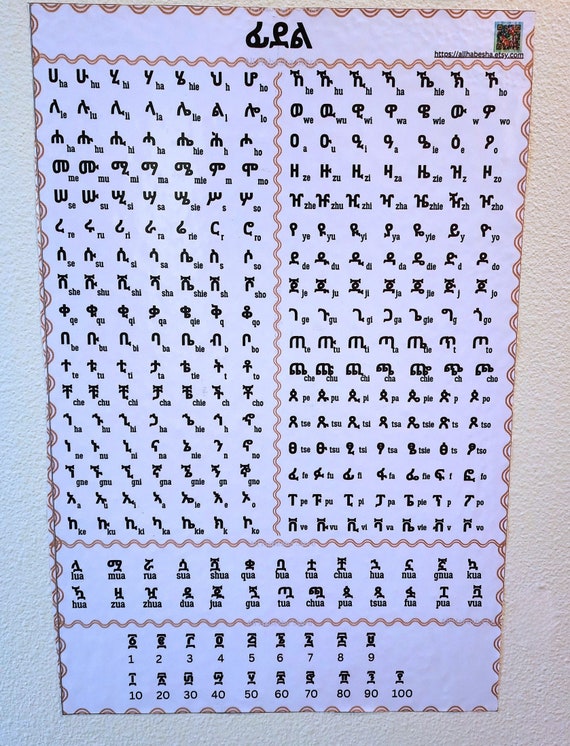 ፊደል
https://allhabesha.etsy.com
ሀ ha ሁ hu ሂ hi ሃ ha ሄ hie ህ h ሆ ho
ለ le ሉ lu ሊ li ላ la ሌ lie ል l ሎ lo
ሐ ha ሑ hu ሒ hi ሓ ha ሔ hie ሕ h ሖ ho
መ me ሙ mu ሚ mi ማ ma ሜ mie ም m ሞ mo
ሠ se ሡ su ሢ si ሣ sa ሤ sie ሥ s ሦ so
ረ re ሩ ru ሪ ri ራ ra ሬ rie ር r ሮ ro
ሰ se ሱ su ሲ si ሳ sa ሴ sie ስ s ሶ so
ሸ she ሹ shu ሺ shi ሻ sha ሼ shie ሽ sh ሾ sho
ቀ qe ቁ qu ቂ qu ቃ qa ቄ qie ቅ q ቆ qo
በ be ቡ bu ቢ bi ባ ba ቤ bie ብ b ቦ bo
ተ te ቱ tu ቲ ti ታ ta ቴ tie ት t ቶ to
ቸ che ቹ chu ቺ chi ቻ cha ቼ chie ች ch ቾ cho
ኀ ha ኁ hu ኂ hi ኃ ha ኄ hie ኅ h ኆ ho
ነ ne ኑ nu ኒ ni ና na ኔ nie ን n ኖ no
ኘ gne ኙ gnu ኚ gni ኛ gna ኜ gnie ኝ gn ኞ gno
አ a ኡ u ኢ i ኣ a ኤ ie እ e ኦ o
ከ ke ኩ ku ኪ ki ካ ka ኬ kie ክ k ኮ ko
ኸ he ኹ hu ኺ hi ኻ ha ኼ hie ኽ h ኾ ho
ወ we ዉ wu ዊ wi ዋ wa ዌ wie ው w ዎ wo
ዐ a ዑ u ዒ i ዓ a ዔ ie ዕ e ዖ o
ዘ ze ዙ zu ዚ zi ዛ za ዜ zie ዝ z ዞ zo
ዠ zhe ዡ zhu ዢ zhi ዣ zha ዤ zhie ዥ zh ዦ zho
የ ye ዩ yu ዪ yi ያ ya ዬ yie ይ y ዮ yo
ደ de ዱ du ዲ di ዳ da ዴ die ድ d ዶ do
ጀ je ጁ ju ጂ ji ጃ ja ጄ jie ጅ j ጆ jo
ገ ge ጉ gu ጊ gi ጋ ga ጌ gie ግ g ጎ go
ጠ te ጡ tu ጢ ti ጣ ta ጤ tie ጥ t ጦ to
ጨ che ጩ chu ጪ chi ጫ cha ጬ chie ጭ ch ጮ cho
ጰ pe ጱ pu ጲ pi ጳ pa ጴ pie ጵ p ጶ po
ጸ tse ጹ tsu ጺ tsi ጻ tsa ጼ tsie ጽ ts ጾ tso
ፀ tse ፁ tsu ፂ tsi ፃ tsa ፄ tsie ፅ ts ፆ tso
ፈ fe ፉ fu ፊ fi ፋ fa ፌ fie ፍ f ፎ fo
ፐ pe ፑ pu ፒ pi ፓ pa ፔ pie ፕ p ፖ po
ቨ ve ቩ vu ቪ vi ቫ va ቬ vie ቭ v ቮ vo
ሏ ሟ ሯ ሷ ሿ ቋ ቧ ቷ ቿ ኋ ኗ ኟ ኳ
lua mua rua sua shua qua bua tua chua hua nua gnua kua
ዃ ዟ ዧ ዷ ጇ ጓ ጧ ጯ ጷ ጿ ፏ ፗ ቯ
hua zua zhua dua jua gua tua chua pua tsua fua pua vua
፩ ፪ ፫ ፬ ፭ ፮ ፯ ፰ ፱
1 2 3 4 5 6 7 8 9
፲ ፳ ፴ ፵ ፶ ፷ ፸ ፹ ፺ ፻
10 20 30 40 50 60 70 80 90 100